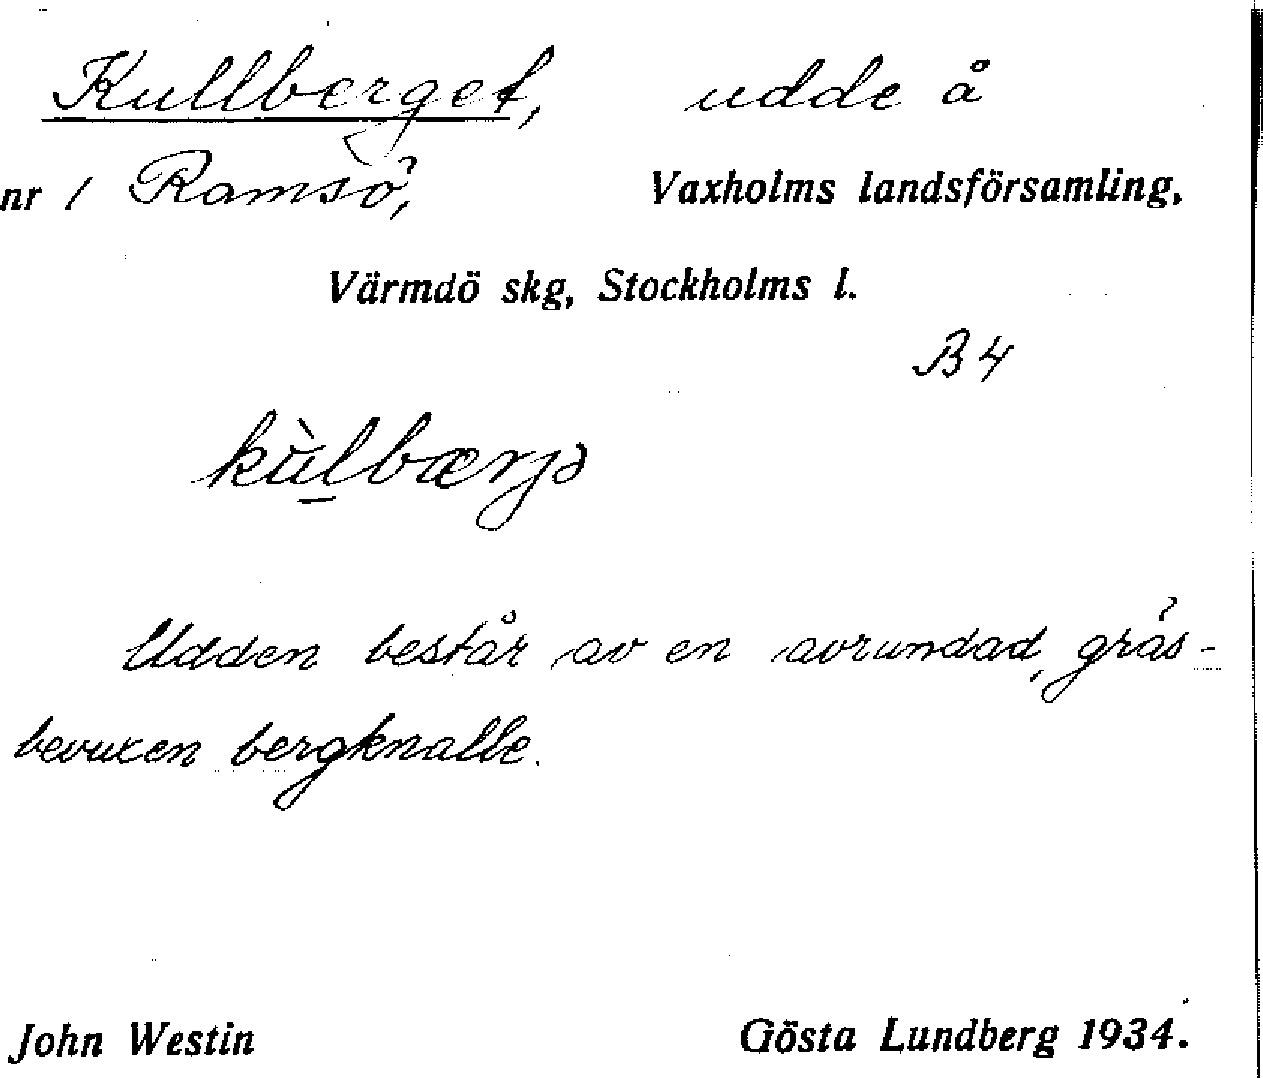 Kullberget, udde å
nr 1 Ramsö, Vaxholms landsförsamling,
Värmdö skg, Stockholms l.
B4
kùlbærjə
Udden består av en avrundad, gräs-
bevuxen bergknalle.
John Westin Gösta Lundberg 1934.